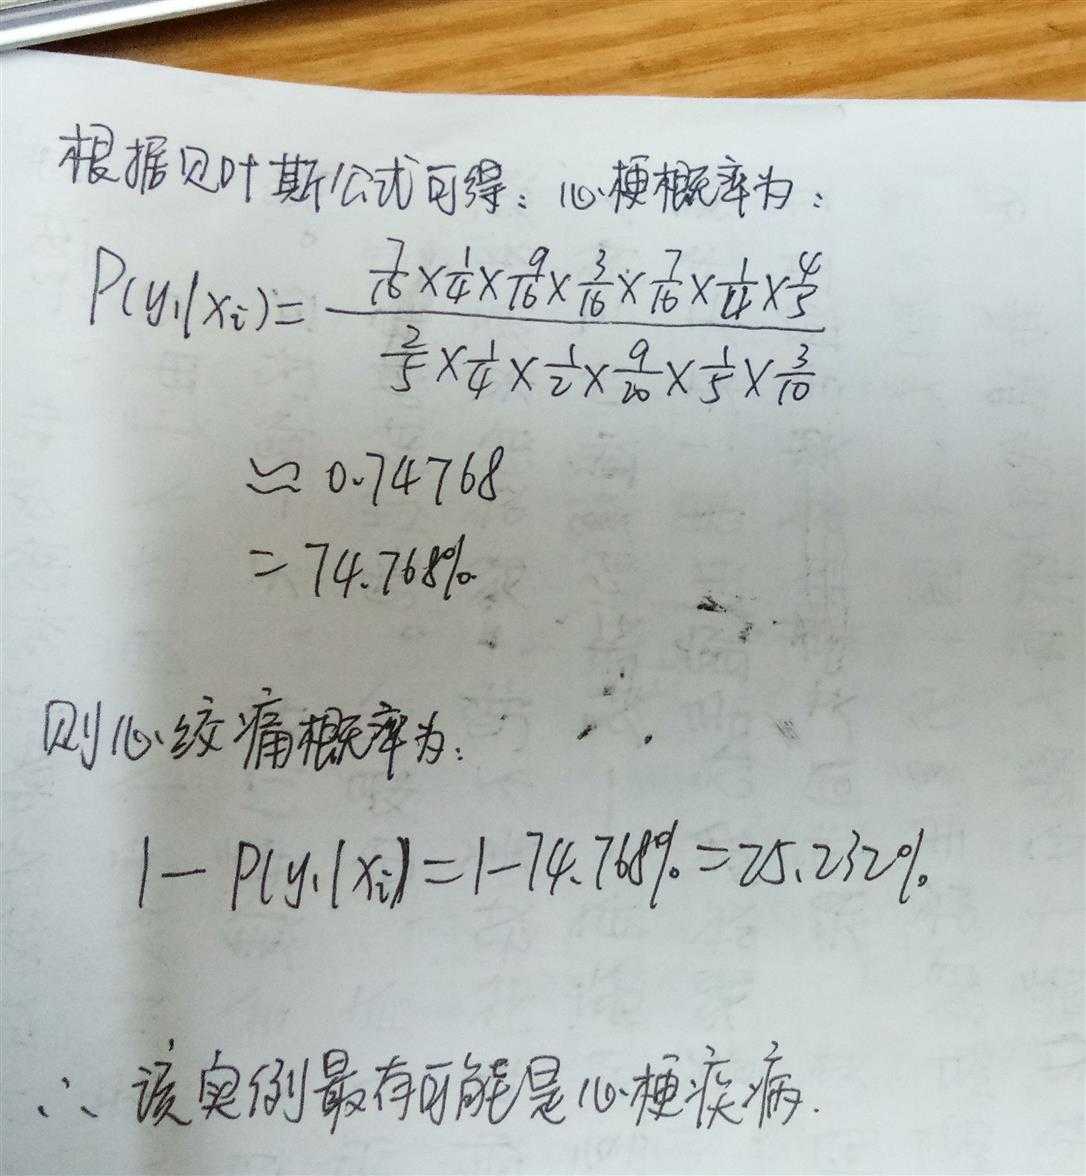 根据贝叶斯公式可得：心梗概率为：
P(y₁|xᵢ)= (7/16 × 1/4 × 9/16 × 3/16 × 7/16 × 1/4 × 4/5) / (2/5 × 1/4 × 1/2 × 9/20 × 1/5 × 3/10)
≈ 0.74768
= 74.768%
则心绞痛概率为：
1 - P(y₁|xᵢ) = 1-74.768% = 25.232%
∴ 该实例最有可能是心梗疾病.